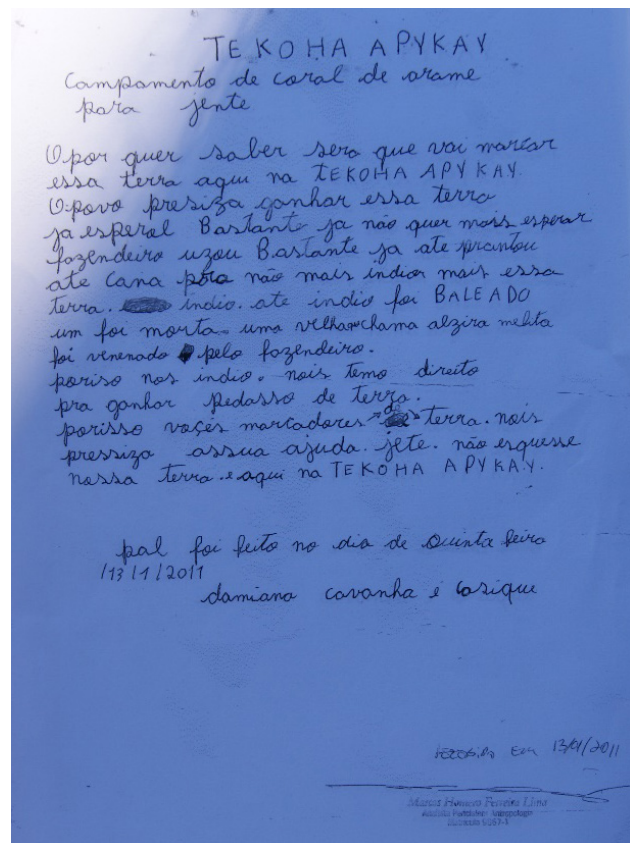 TEKOHA APYKAY
Campamento de coral de arame
para jente
O por quer saber sera que vai marcar
essa terra aqui na TEKOHA APYKAY.
O povo presiza ganhar essa terra
ja esperal Bastante ja não quer mais esperar
fazendeiro uzou Bastante ja ate prantou
ate cana não mais indior mais essa
terra. indio. ate indio foi BALEADO
um foi morta. uma velha chama alzira melita
foi venenado pelo fazendeiro.
poriso nos indio. nois temo direito
pra ganhar pedasso de terra.
porisso voçês marcadores de terra. nois
pressiza assua ajuda. jete. não esquesse
nossa terra. e aqui na TEKOHA APYKAY.
pal foi feito no dia de Quinta feira
/13/1/2011
damiana cavanha e Casique
recebido em 13/01/2011
Marcos Homero Ferreira Lima